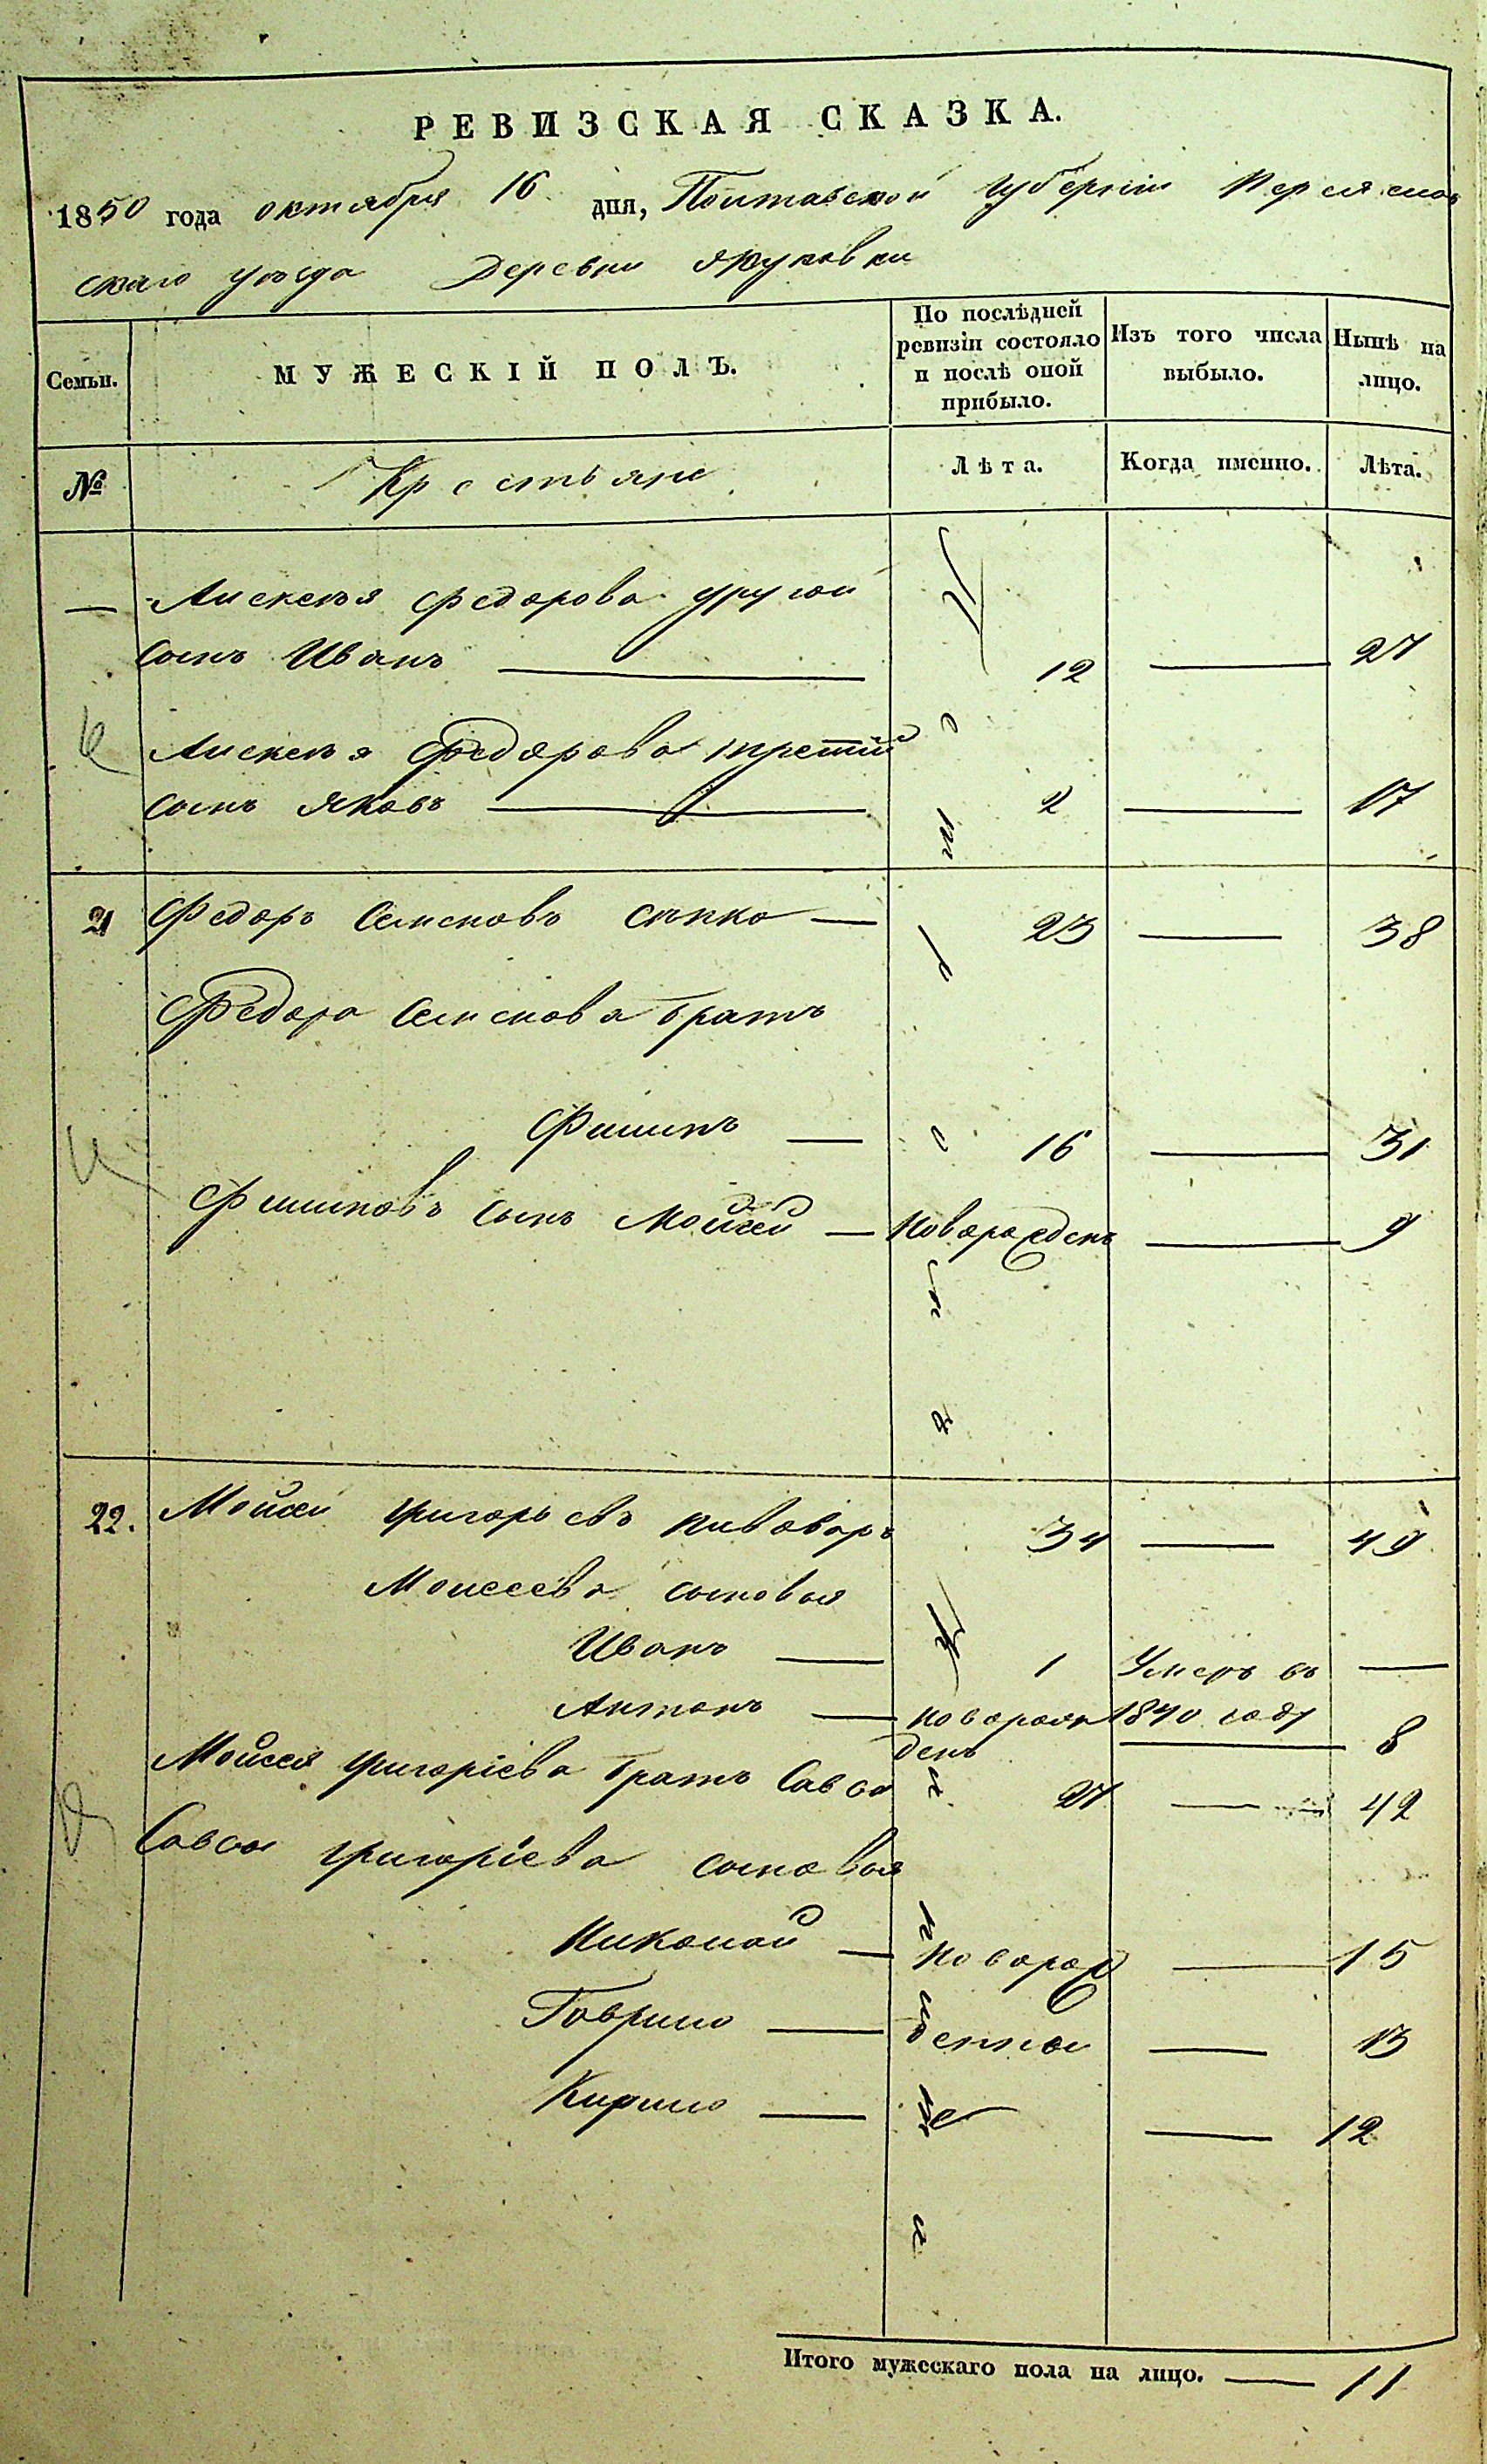 РЕВИЗСКАЯ СКАЗКА.
1850 года октября 16 дня, Полтавской губернiи Переяслов
скаго уезда Деревни
Семьи.
МУЖЕСКIЙ ПОЛЪ.
По послѣдней
ревизiи состояло
и послѣ оной
прибыло.
Изъ того числа
выбыло.
Нынѣ на
лицо.
№
Крестьяне
Лѣта.
Когда именно.
Лѣта.
— Алексея Федорова другой
сынъ Иванъ — 12 — 27
Алексея Федорова третiй
сынъ Яковъ — 2 — 17
21 Федоръ Семеновъ — 23 — 38
Федора Семенова братъ
Филипъ — 16 — 31
Филиповъ сынъ Мойсей — Новорожденъ — 9
22. Мойсей Григорьевъ Пивоваръ 34 — 49
Моисеева сыновья
Иванъ — 1 Умеръ въ —
Антонъ — новорож 1840 году
денъ — 8
Мойсея Григорiева братъ Савва 27 — 42
Саввы Григорiева сыновья
Николай — Новорож — 15
Гаврило — денные — 13
Кирило — — 12
Итого мужескаго пола на лицо. — 11